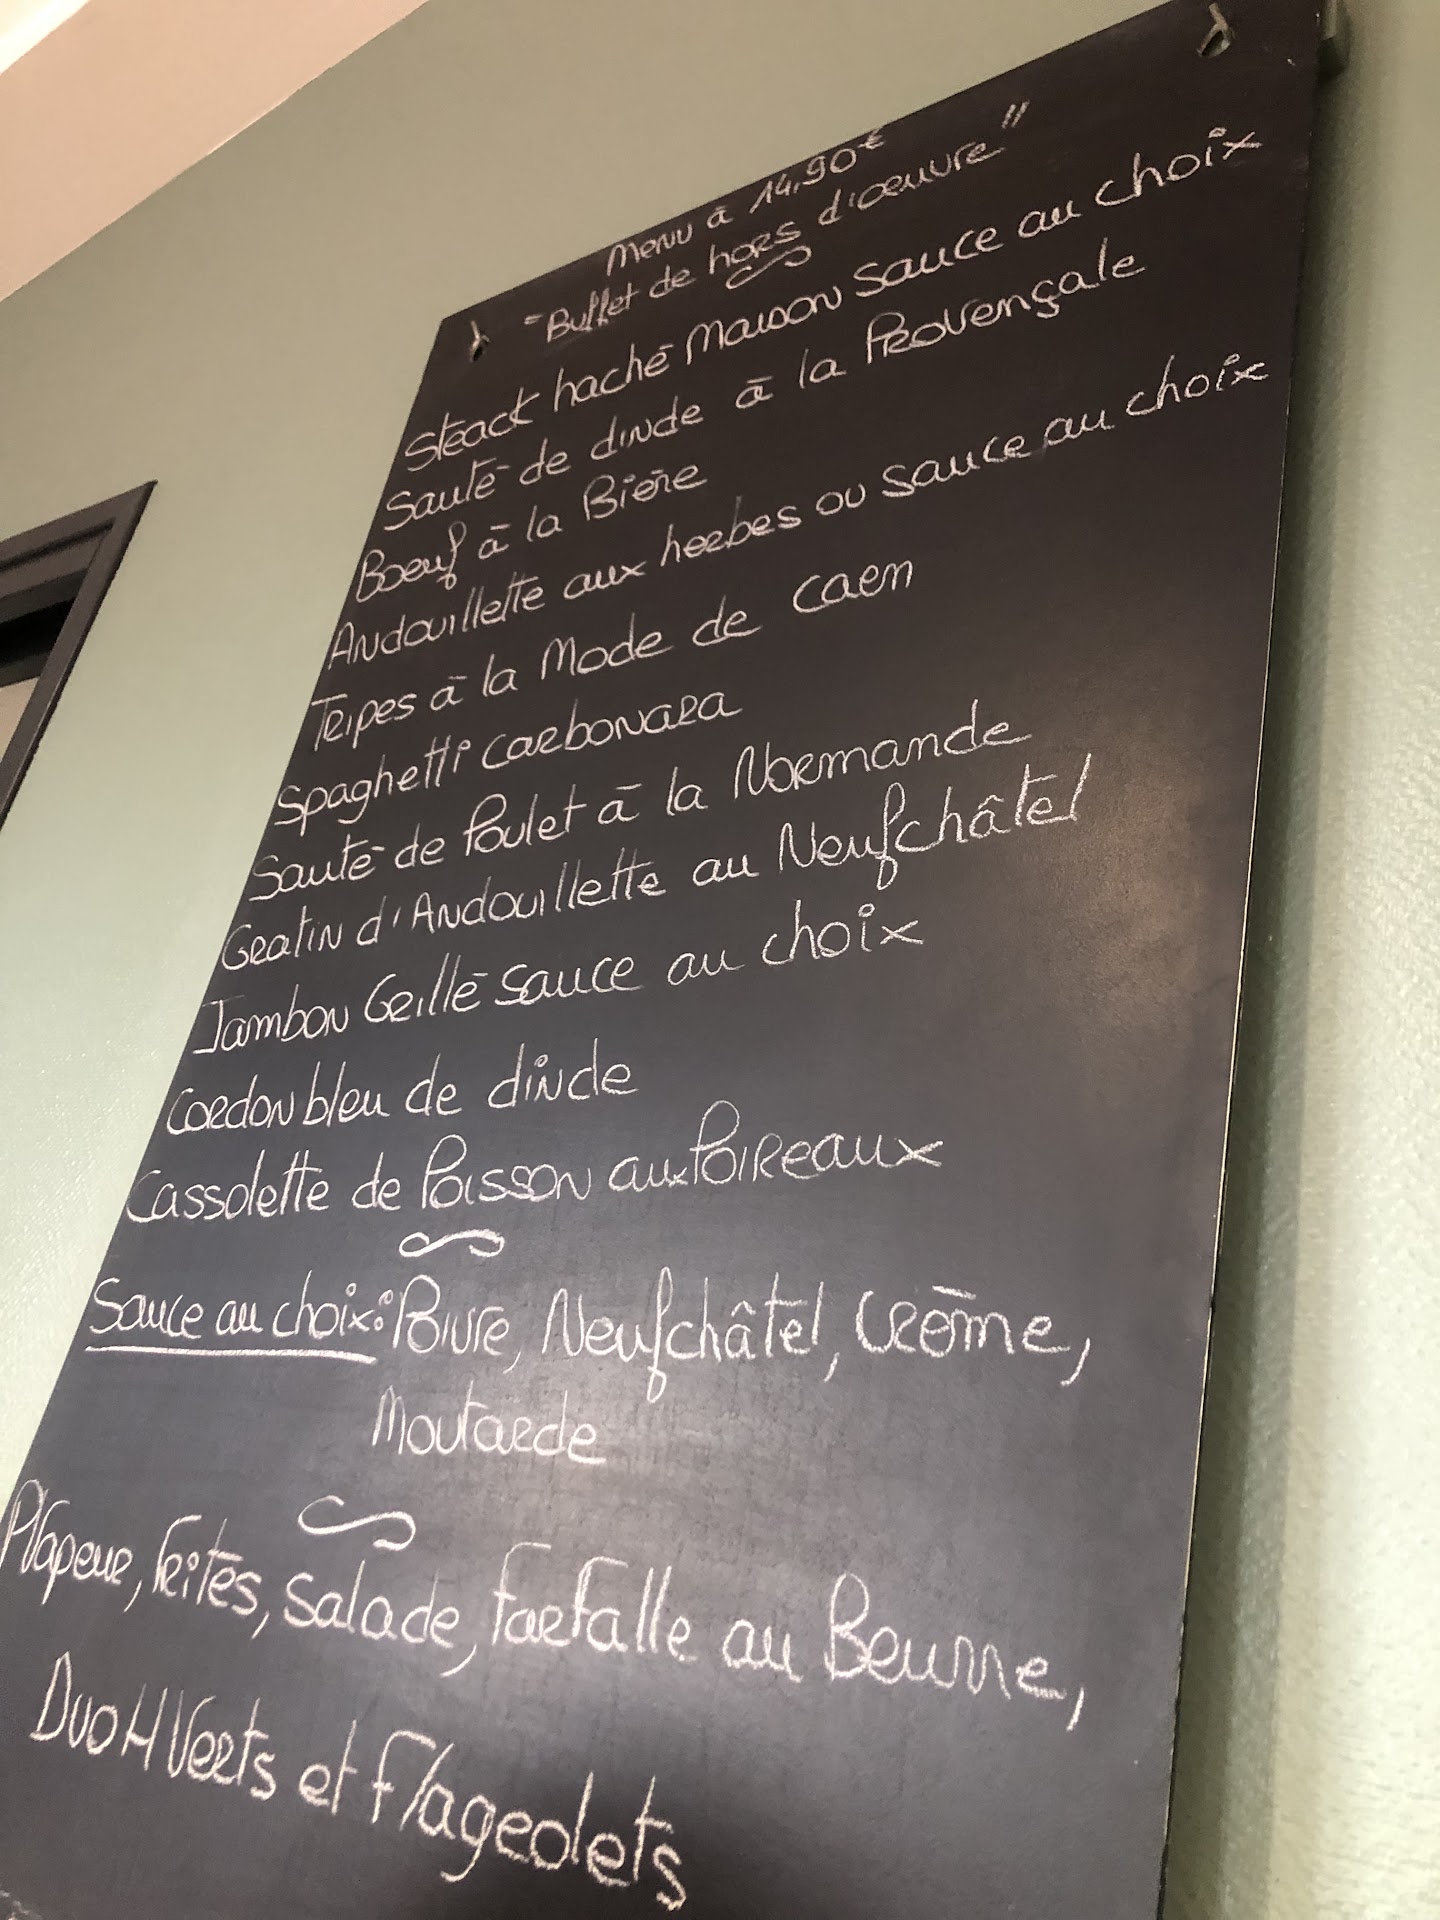 Menu à 14.90€
"Buffet de hors d'oeuvre"
Steack haché Maison sauce au choix
Sauté de dinde à la Provençale
Boeuf à la Bière
Andouillette aux herbes ou sauce au choix
Tripes à la Mode de caen
Spaghetti carbonara
Sauté de Poulet à la Normande
Gratin d'Andouillette au Neufchâtel
Jambon Grillé sauce au choix
Cordon bleu de dinde
Cassolette de Poisson aux Poireaux
Sauce au choix: Poivre, Neufchâtel, Crème,
Moutarde
P Vapeur, Frites, Salade, Farfalle au Beurre,
Duo H Verts et Flageolets